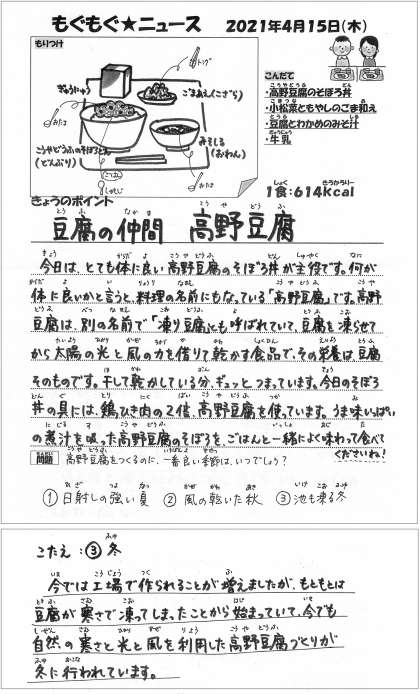 もぐもぐ★ニュース 2021年4月15日(木)
もりつけ
トング
ぎゅうにゅう
ごまあえ(こざら)
おたま
こうやどうふのそぼろどん
(どんぶり)
みそしる
(おわん)
ごはん
しゃもじ
おたま
こんだて
・高野豆腐のそぼろ丼
・小松菜ともやしのごま和え
・豆腐とわかめのみそ汁
・牛乳
1食:614kcal
きょうのポイント
豆腐の仲間 高野豆腐
今日は、とても体に良い高野豆腐のそぼろ丼が主役です。何が
体に良いかと言うと、料理の名前にもなっている「高野豆腐」です。高野
豆腐は、別の名前で「凍り豆腐」とも呼ばれていて、豆腐を凍らせて
から太陽の光と風の力を借りて乾かす食品で、その栄養は豆腐
そのものです。干して乾かしている分、ギュッとつまっています。今日のそぼろ
丼の具には、鶏ひき肉の2倍、高野豆腐を使っています。うま味いっぱい
の煮汁を吸った高野豆腐のそぼろを、ごはんと一緒によく味わって食べて
くださいね!
問題 高野豆腐をつくるのに、一番良い季節は、いつでしょう?
①日射しの強い夏 ②風の乾いた秋 ③池も凍る冬
こたえ:③冬
今では工場で作られることが増えましたが、もともとは
豆腐が寒さで凍ってしまったことから始まっていて、今でも
自然の寒さと光と風を利用した高野豆腐づくりが
冬に行われています。